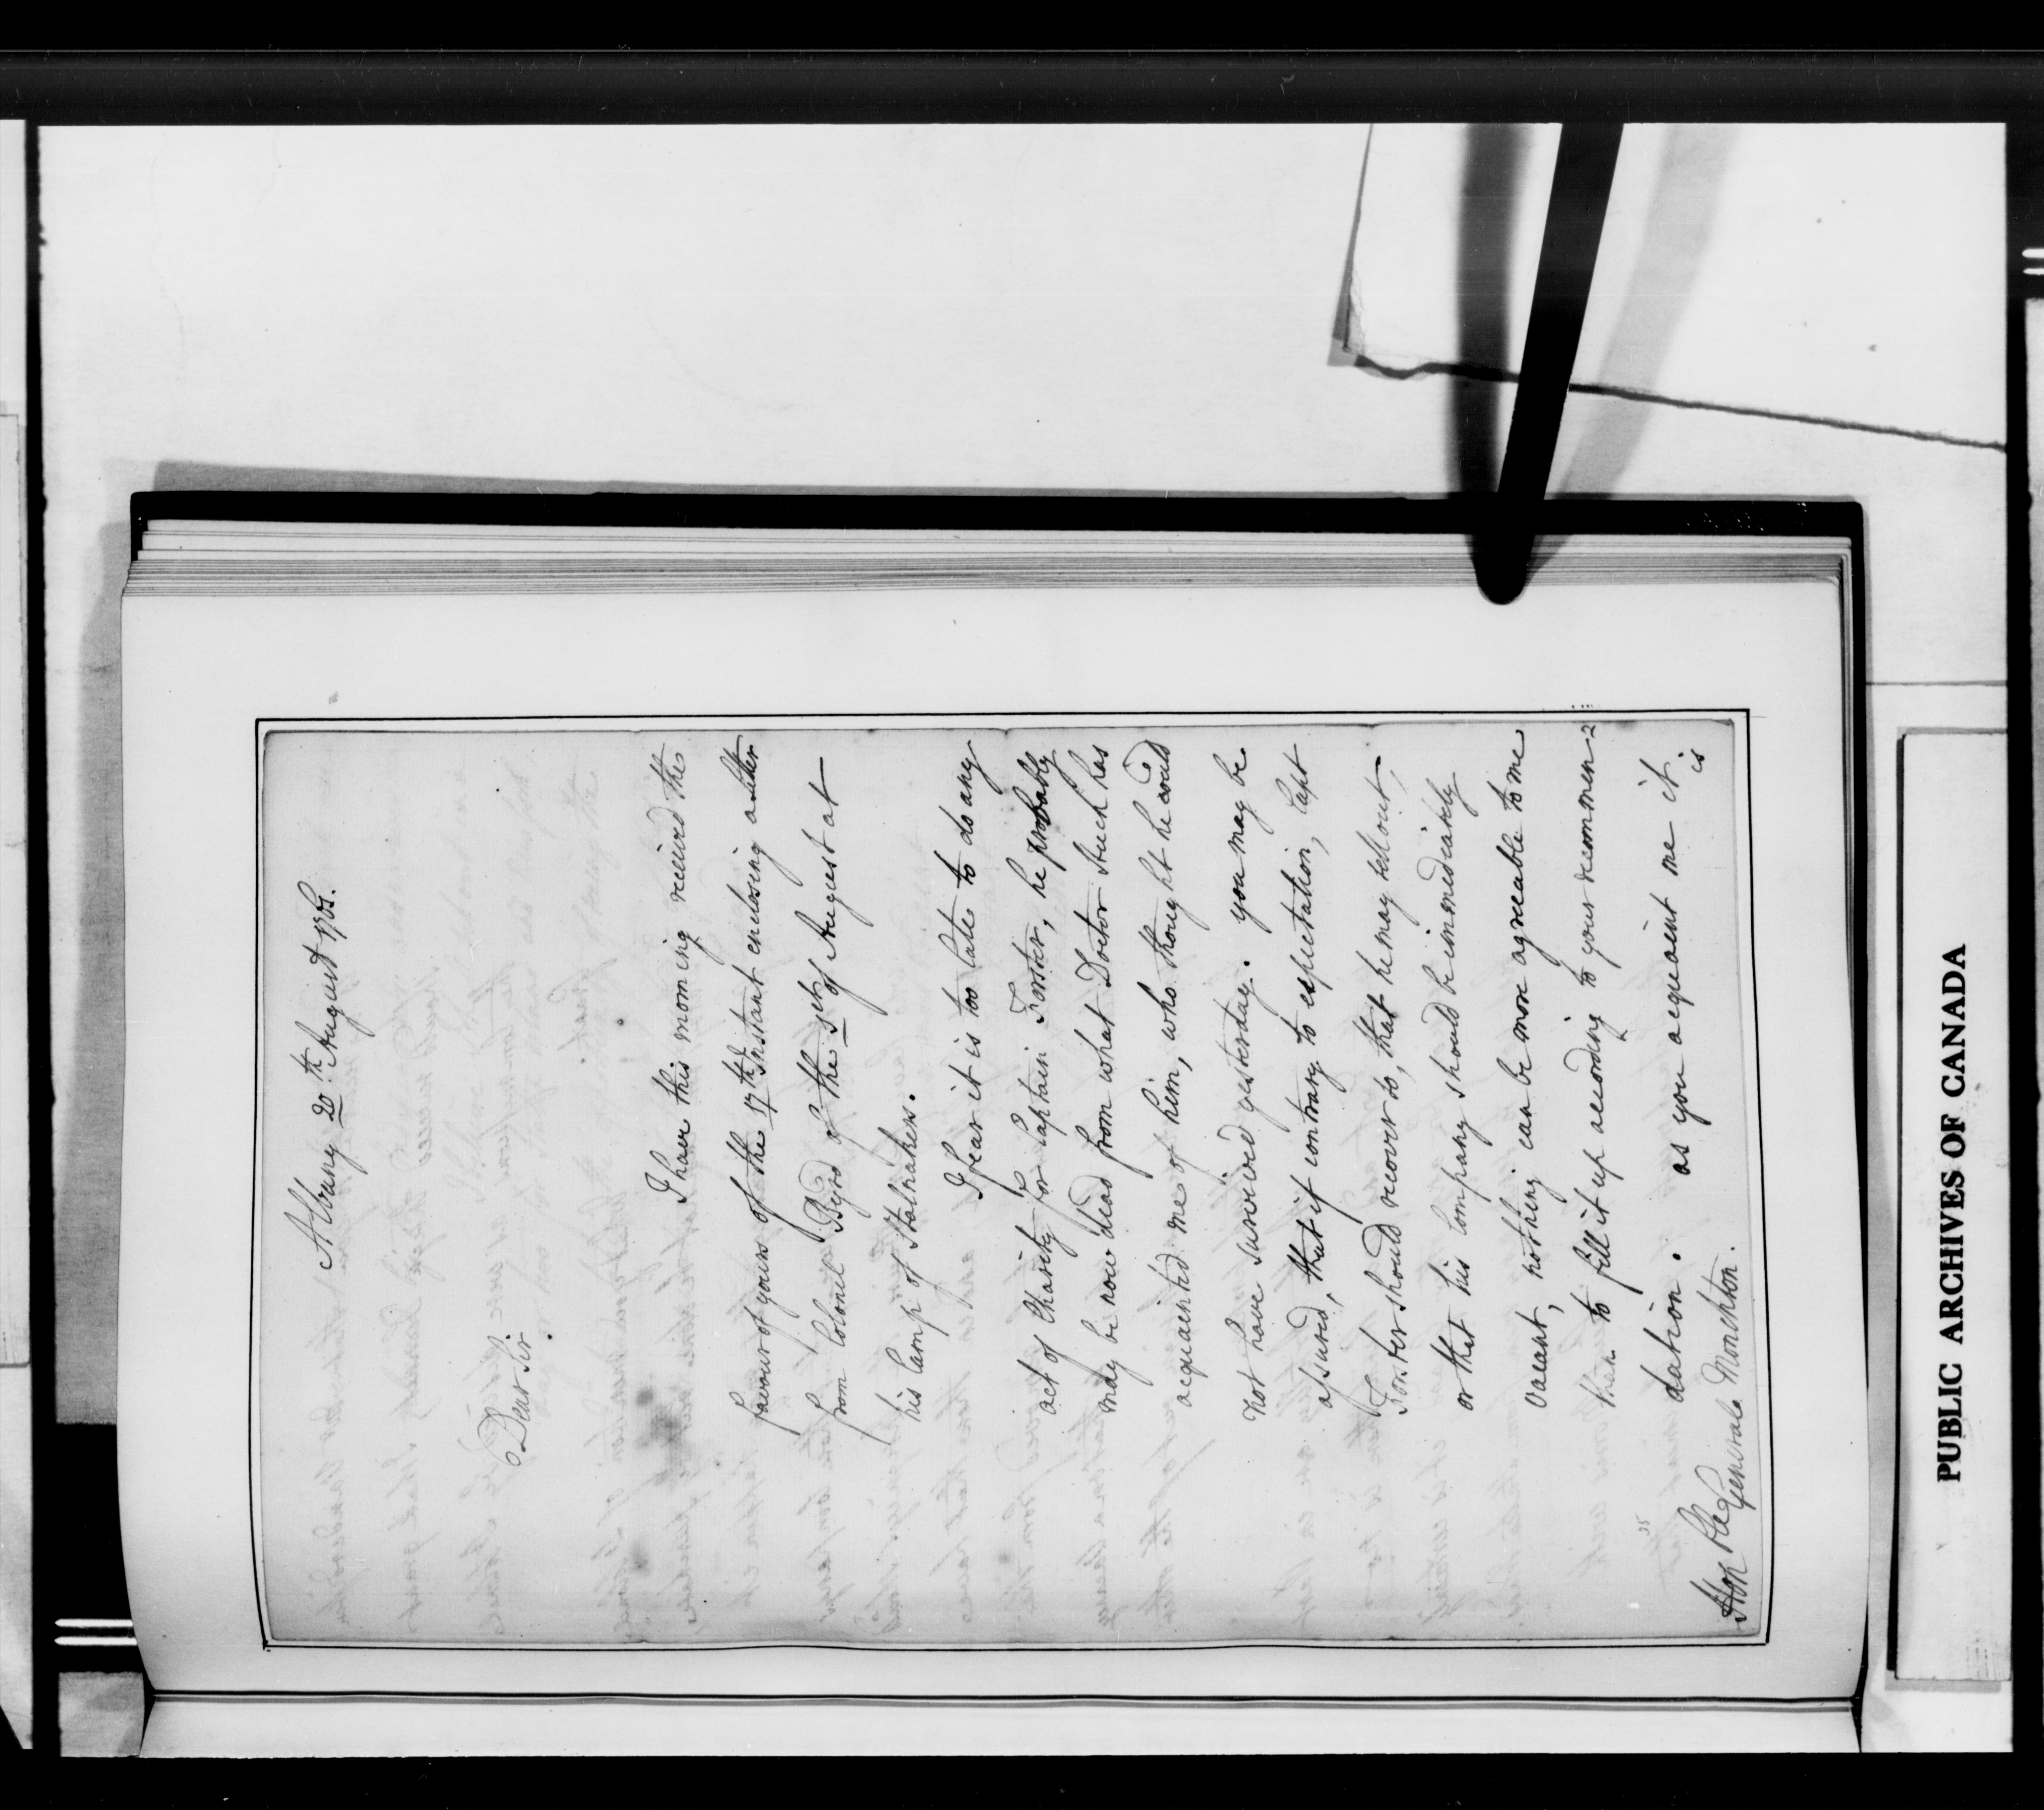 Albany 20th August 1761.
Dear Sir.
I have this morning received the
favour of yours of the 17th Instant enclosing a letter
from Colonel Byrd of the 5th of August at
his Camp of Stalnakers.
I fear it is too late to do any
act of Charity for Captain Forster, he probably
may be now dead from what Doctor Huck has
acquainted me of him, who thought he could
not have survived yesterday. you may be
assured, that if contrary to expectation, Capt
Forster should recover so, that he may sell out,
or that his Company should be immediately
vacant, nothing can be more agreeable to me
than to fill it up according to your recommen=
dation. as you acquaint me it is
Honble General Monckton.
PUBLIC ARCHIVES OF CANADA